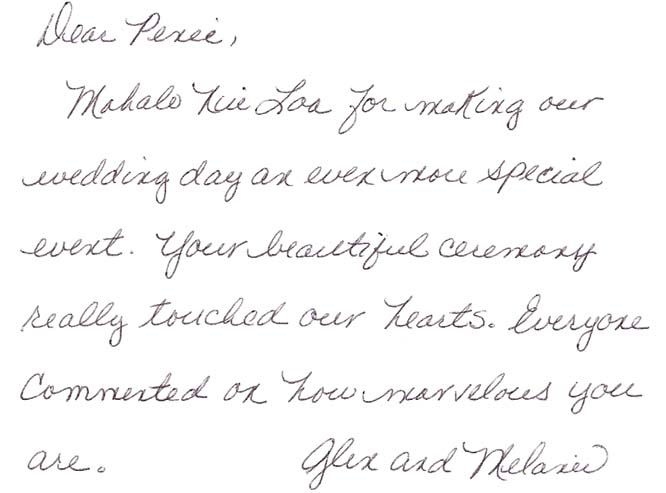 Dear Penee,
Mahalo Nui Loa for making our
wedding day an even more special
event. Your beautiful ceremony
really touched our hearts. Everyone
commented on how marvelous you
are. Glen and Melanie